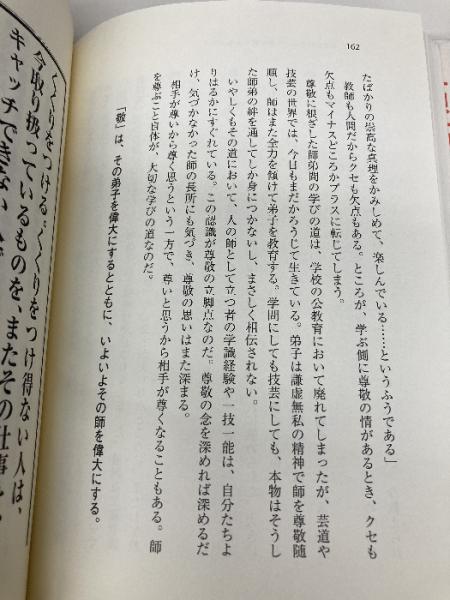 162
たばかりの崇高な真理をかみしめて、楽しんでいる……というふうである」
教師も人間だからクセも欠点もある。ところが、学ぶ側に尊敬の情があるとき、クセも
欠点もマイナスどころかプラスに転じてしまう。
尊敬に根ざした師弟間の学びの道は、学校の公教育において廃れてしまったが、芸道や
技芸の世界では、今日もまだかろうじて生きている。弟子は謙虚無私の精神で師を尊敬随
順し、師はまた全力を傾けて弟子を教育する。学問にしても技芸にしても、本物はそうし
た師弟の絆を通してしか身につかないし、まさしく相伝されない。
いやしくもその道において、人の師として立つ者の学識経験や一技一能は、自分たちよ
りはるかにすぐれている。この認識が尊敬の立脚点なのだ。尊敬の念を深めれば深めるだ
け、気づかなかった師の長所にも気づき、尊敬の思いはまた深まる。
相手が尊いから尊く思うという一方で、尊いと思うから相手が尊くなることもある。師
を尊ぶこと自体が、大切な学びの道なのだ。
「敬」は、その弟子を偉大にするとともに、いよいよその師を偉大にする。
くくりをつける・くくりをつけ得ない人は、
今取り扱っているものを、またその仕事を
キャッチできない人で